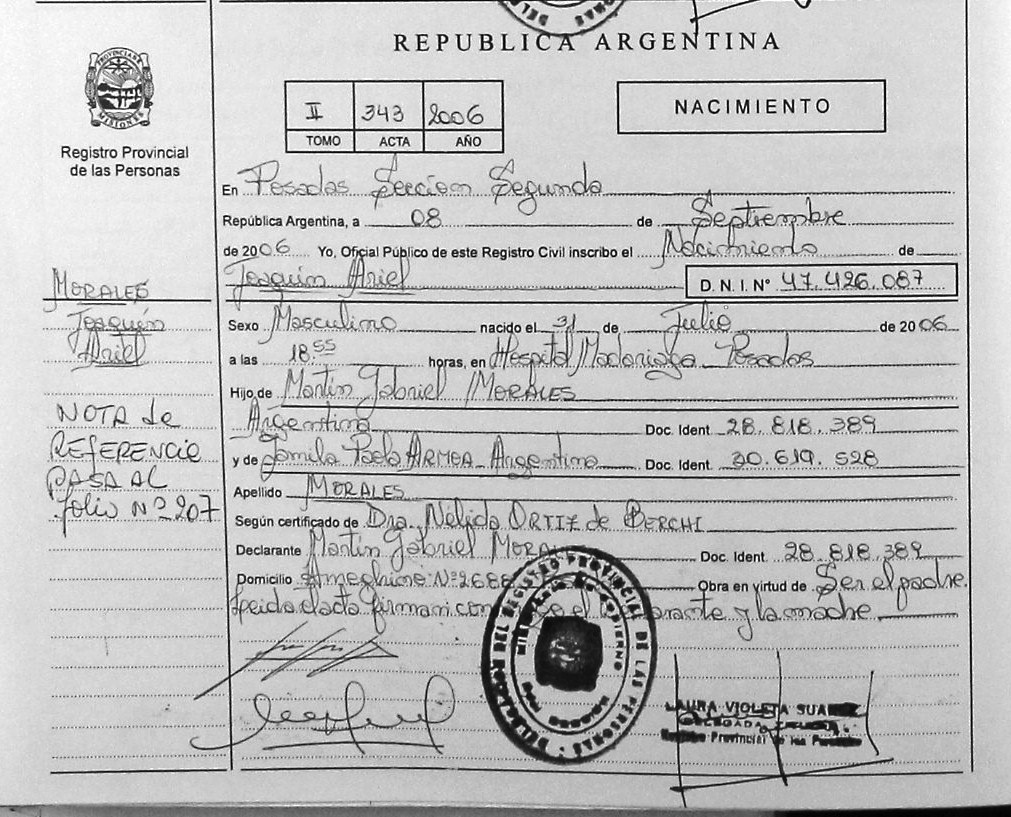 REPUBLICA ARGENTINA
PROVINCIA DE MISIONES
Registro Provincial
de las Personas
II 343 2006
TOMO ACTA AÑO
NACIMIENTO
En Posadas Seccion Segunda
República Argentina, a 08 de Septiembre
de 2006 Yo, Oficial Público de este Registro Civil inscribo el Nacimiento de
Joaquín Ariel D.N.I. Nº 47.426.087
Sexo Masculino nacido el 31 de Julio de 2006
a las 18.55 horas, en Hospital Madariaga Posadas
Hijo de Martin Gabriel MORALES
Argentino Doc. Ident. 28.818.389
y de Paola ARMOA Argentina Doc. Ident. 30.619.528
Apellido MORALES
Según certificado de Dra. Nélida ORTIZ de BERCHI
Declarante Martin Gabriel MORALES Doc. Ident. 28.818.389
Domicilio Ameghino Nº2686 Obra en virtud de Ser el padre.
Leida el acta firman con el y la madre
MORALES
Joaquín
Ariel
NOTA de
REFERENCIA
PASA AL
folio Nº 207
DELEGACION DEL REGISTRO PROVINCIAL DE LAS PERSONAS
LAURA VIOLETA
DELEGADA
Registro Provincial de las Personas